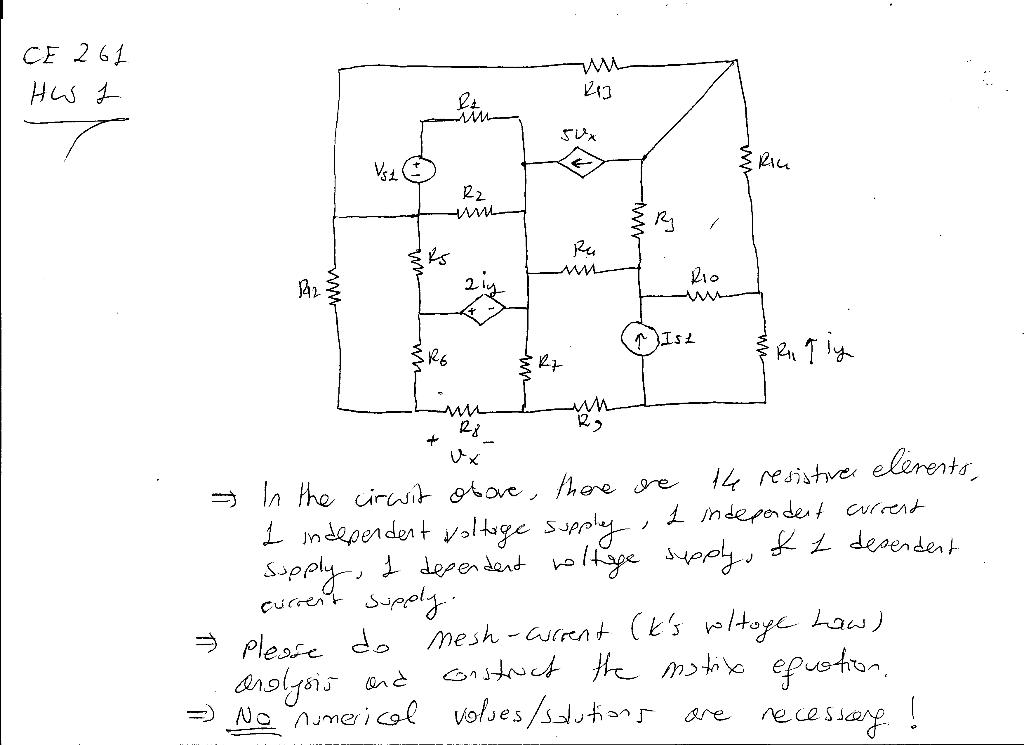 CE 261
HW 1
R13
R1
5Vx
Vs1
+
-
R14
R2
R3
R5
R4
R12
2iy
+ -
R10
Is1
R6
R7
R11 ↑ iy
R8
R9
+ -
Vx
⇒ In the circuit above, there are 14 resistive elements,
1 independent voltage supply, 1 independent current
supply, 1 dependent voltage supply, & 1 dependent
current supply.
⇒ Please do mesh-current (K's voltage Law)
analysis and construct the matrix equation.
⇒ No numerical values/solutions are necessary!